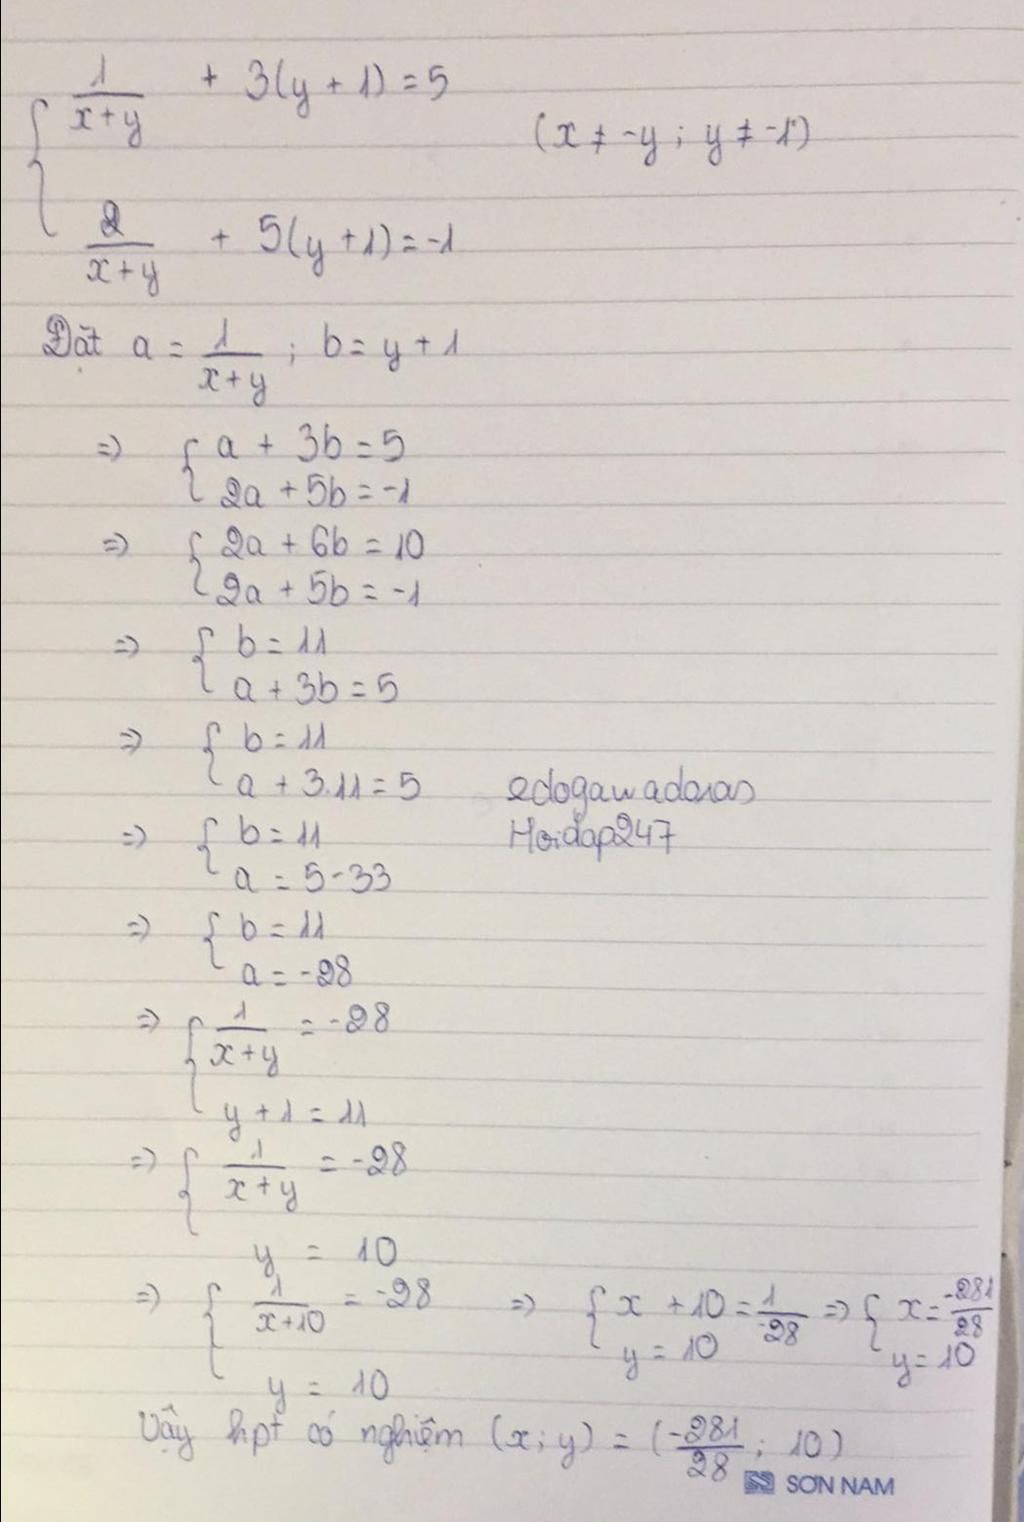 { 1/(x+y) + 3(y+1) = 5
(x ≠ -y ; y ≠ -1)
2/(x+y) + 5(y+1) = -1
Đặt a = 1/(x+y) ; b = y+1
=> { a + 3b = 5
2a + 5b = -1
=> { 2a + 6b = 10
2a + 5b = -1
=> { b = 11
a + 3b = 5
=> { b = 11
a + 3.11 = 5
edogawadoras
=> { b = 11
Hoidap247
a = 5 - 33
=> { b = 11
a = -28
=> { 1/(x+y) = -28
y + 1 = 11
=> { 1/(x+y) = -28
y = 10
=> { 1/(x+10) = -28 => { x + 10 = 1/-28 => { x = -281/28
y = 10 y = 10 y = 10
Vậy hpt có nghiệm (x ; y) = (-281/28 ; 10)
SƠN NAM